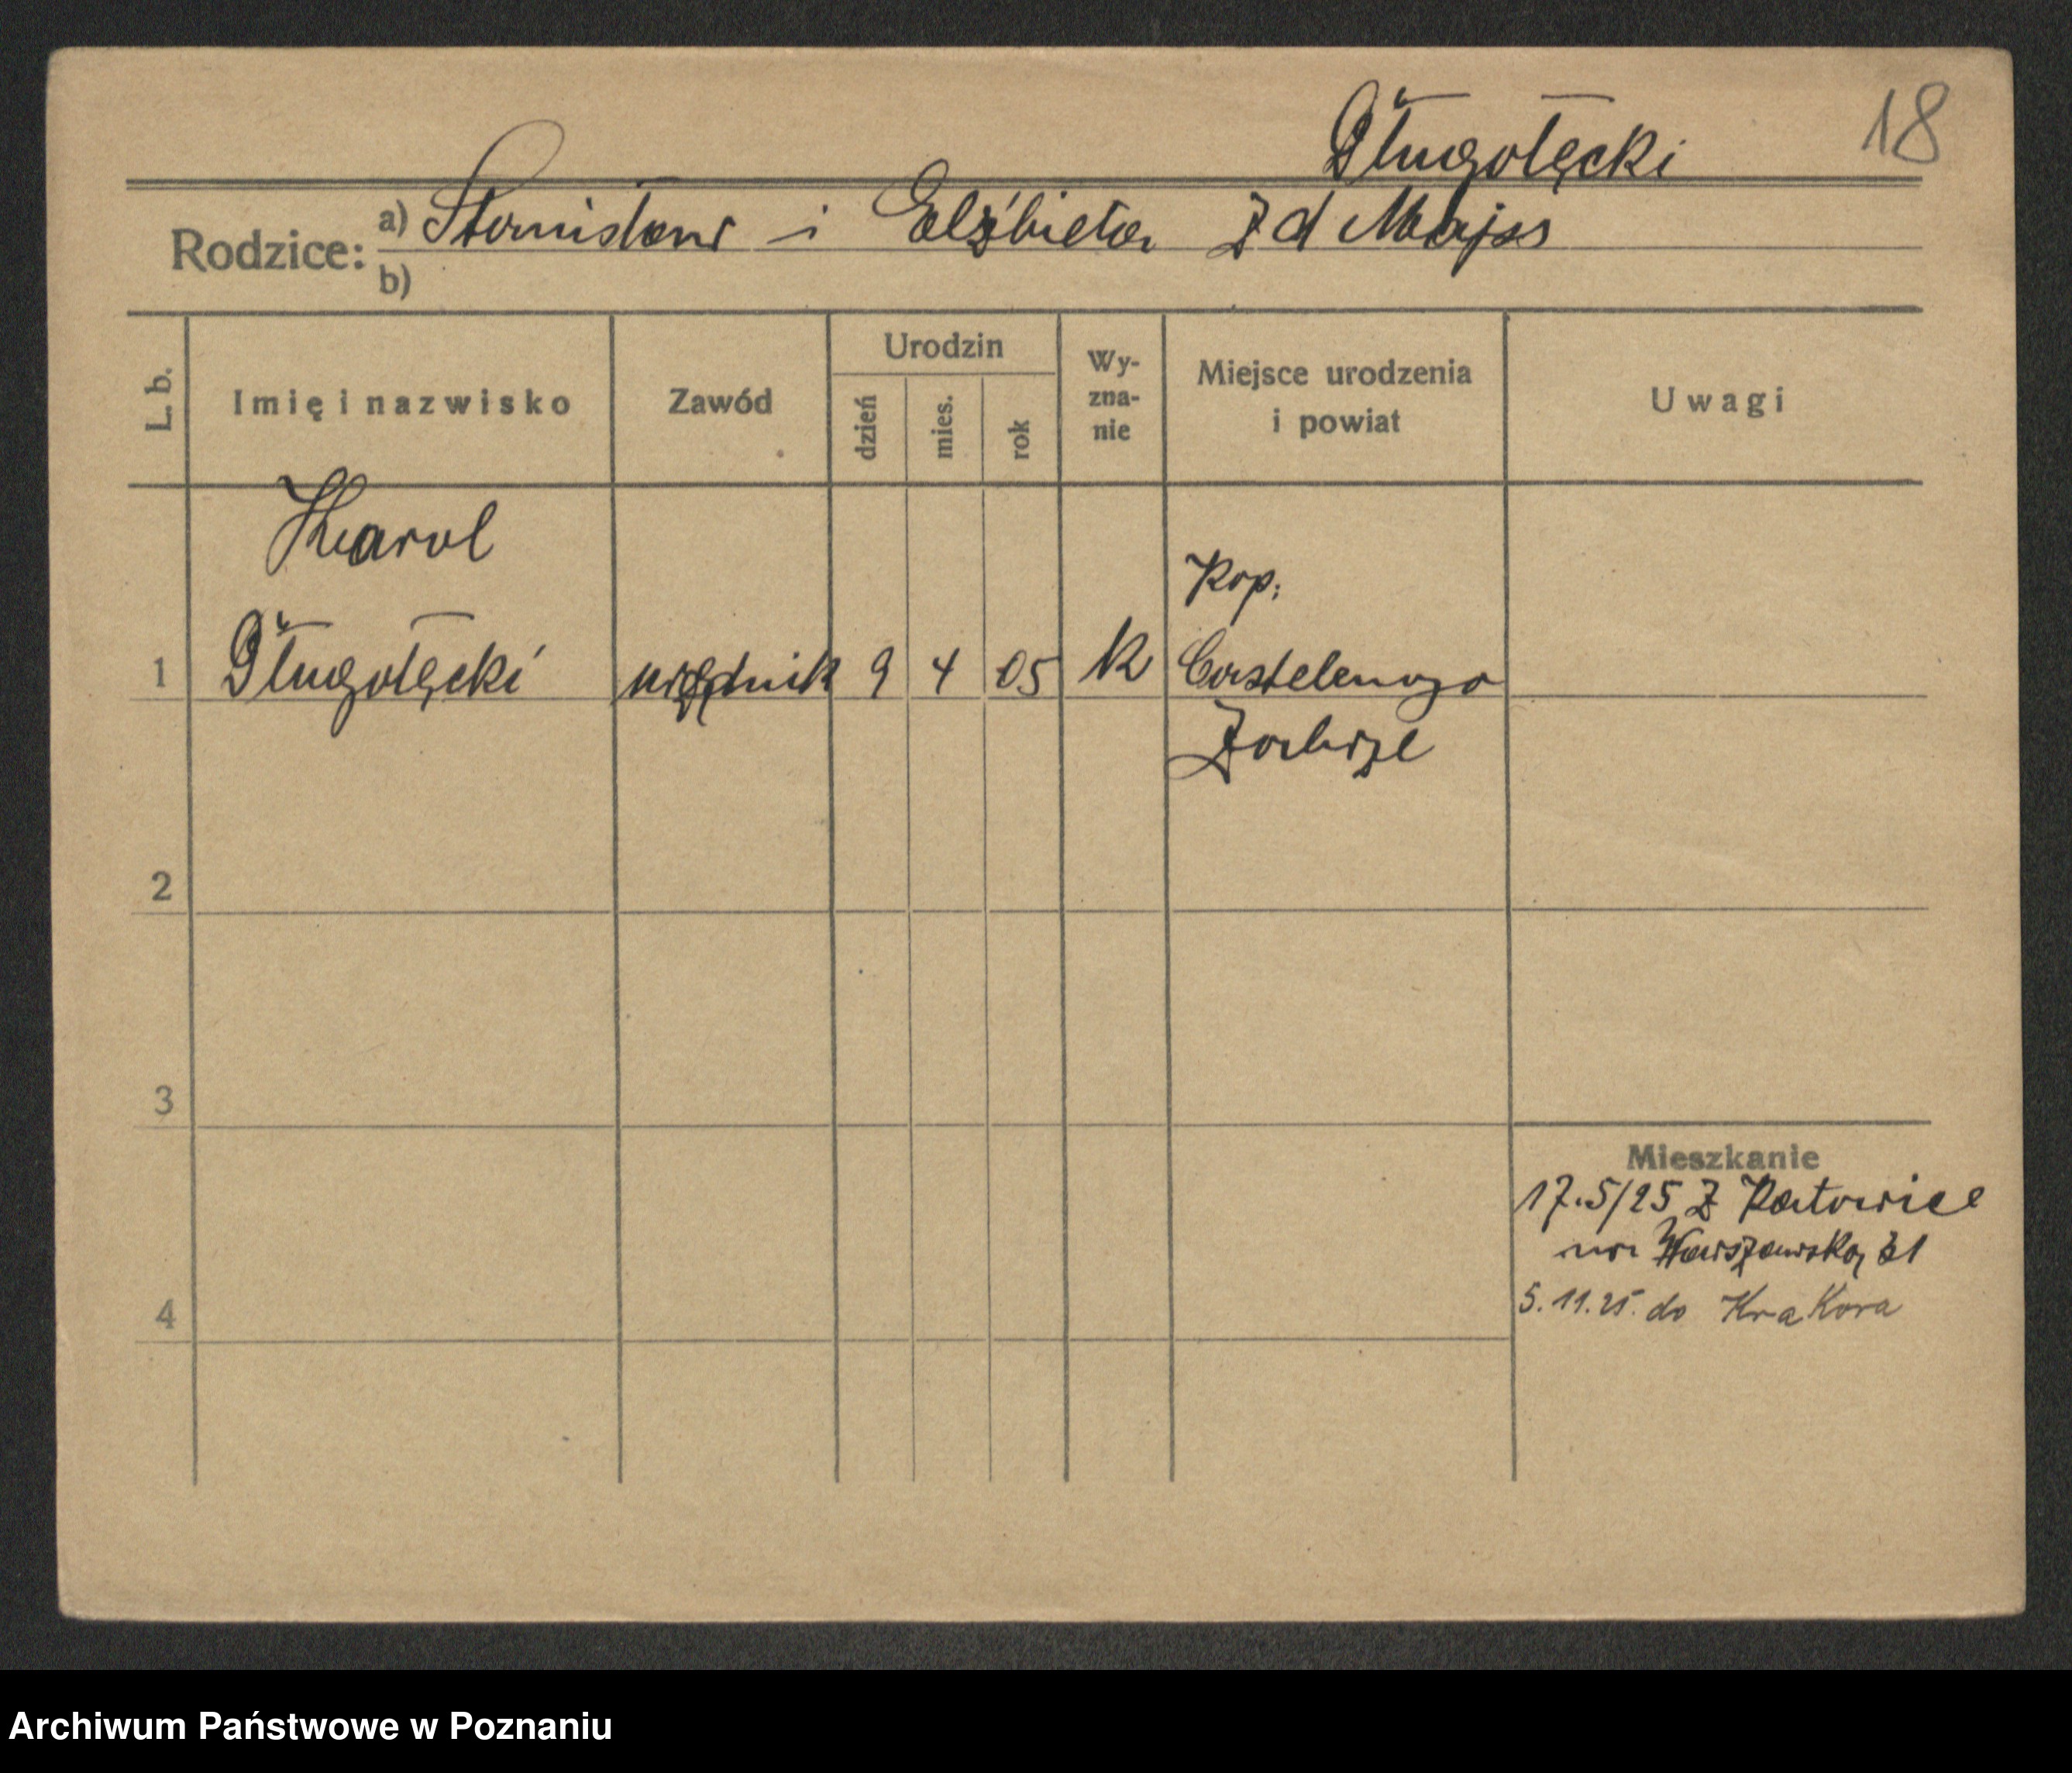 Długołęcki 18
Rodzice: a) Stanisław i Elżbieta z d Majss
b)
L. b. Imię i nazwisko Zawód Urodzin dzień mies. rok Wy-zna-nie Miejsce urodzenia i powiat Uwagi
Karol
Kop.
1 Długołęcki urzędnik 9 4 05 K Castelengo
Zabrze
2
3
Mieszkanie
17.5/25 z Katowice
na Warszawską 31
4 5.11.25. do Krakowa
Archiwum Państwowe w Poznaniu